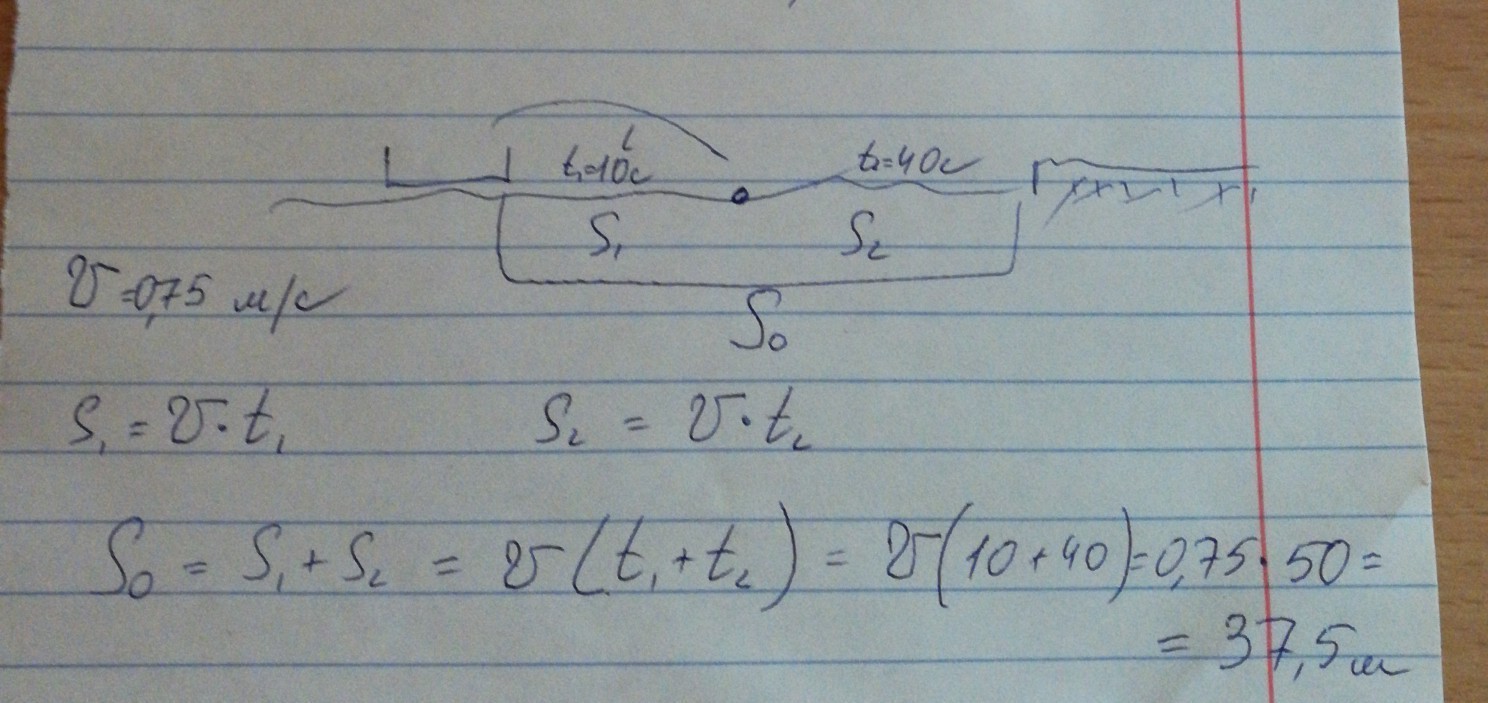 t₁=10с t₂=40с
S₁ S₂
υ=0,75 м/с
S₀
S₁ = υ·t₁ S₂ = υ·t₂
S₀ = S₁ + S₂ = υ(t₁+t₂) = υ(10+40)=0,75·50=
= 37,5м